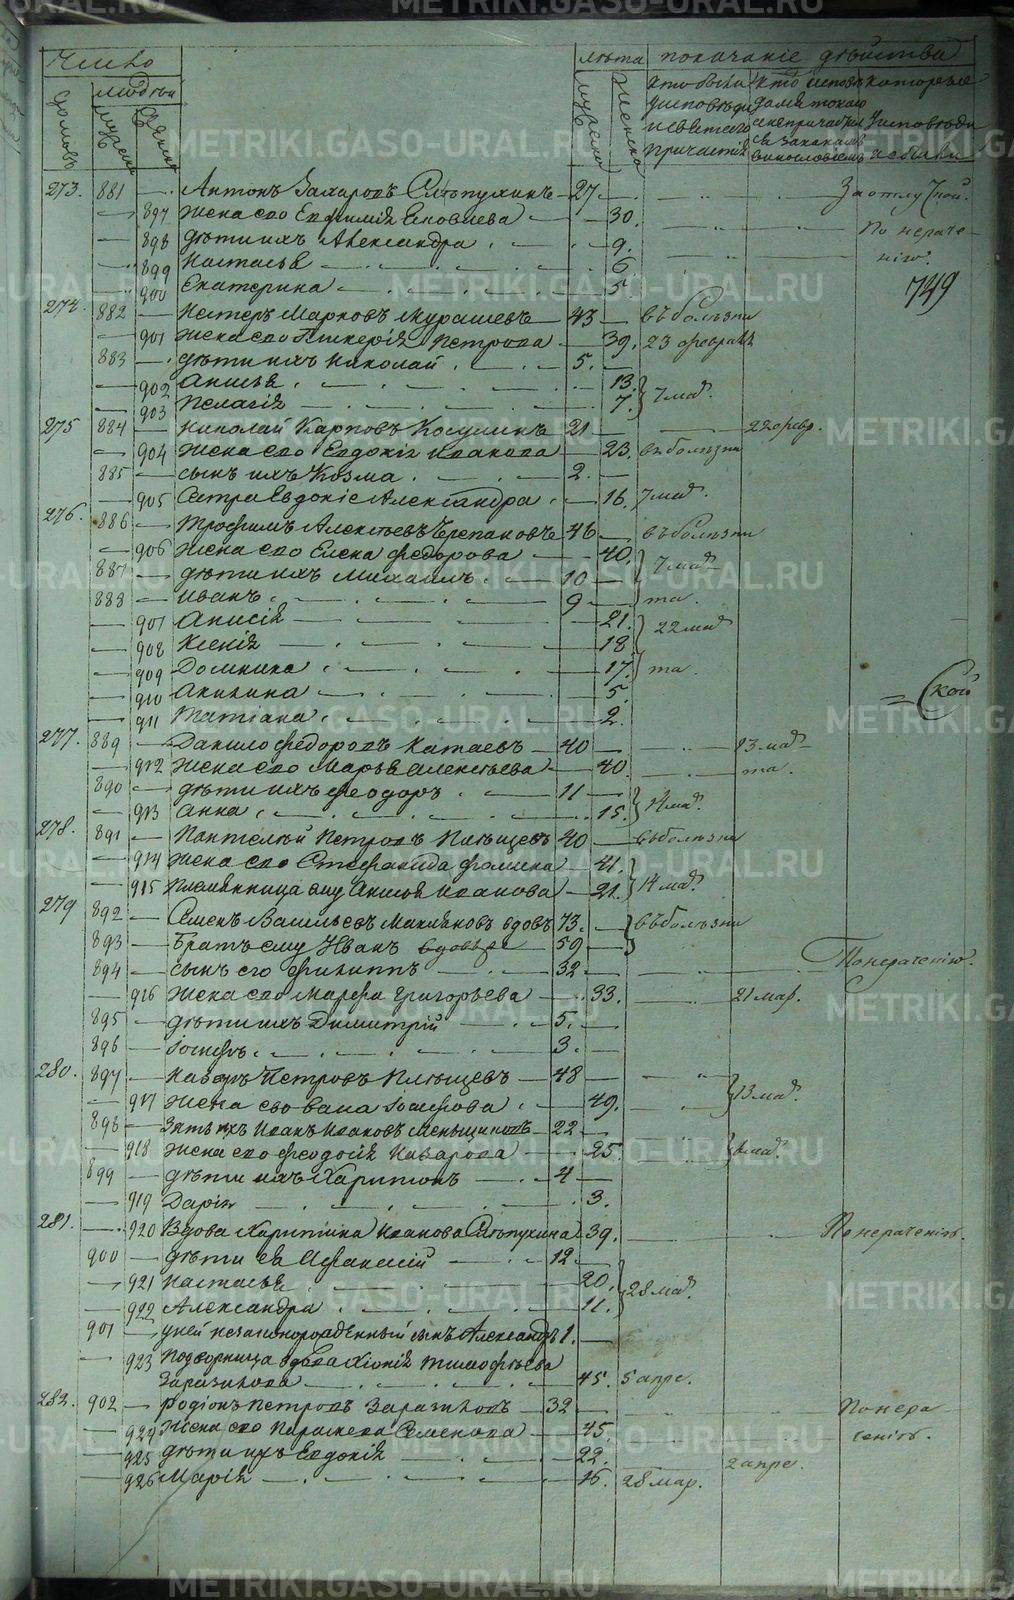 Число
лѣта показаніе дѣйства
людей
домовъ
мужеска
женска
мужеска
женска
кто были у исповѣди и святаго причастія
кто исповѣдался токмо
которые у исповѣди не были
273. 881 — Антонъ Захаровъ Слѣпухинъ — 27 — За отлучкой.
— 897 жена его Евфимія Яковлева — 30. По нераче-
— 898 дѣти ихъ Александра — 9. ніго.
— 899 Настасья — 6
— 900 Екатерина — 5. 749
274. 882 — Нестеръ Марковъ Мурашевъ — 43 — въ болѣзни
— 901 жена его Гликерія Петрова — 39. 23 февраля
883 — дѣти ихъ Николай — 5. —
— 902 Анисья — 13.
— 903 Пелагія — 7. } 7 мар.
275 884 — Николай Карповъ Косулинъ 21 — 22 февр.
— 904 жена его Евдокія Иванова — 23. въ болѣзни
885 — сынъ ихъ Козма — 2. —
— 905 Сестра Евдокіе Александра — 16. 7 мар.
276. 886 — Трофимъ Алексѣевъ Черепановъ 46 — въ болѣзни
— 906 жена его Елена Федорова — 40. } 7 мар.
887 — дѣти ихъ Михаилъ — 10 —
888 — Иванъ — 9 — } та.
— 907 Анисія — 21. } 22 мар
— 908 Ксенія — 18
— 909 Домника — 17. } та.
— 910 Акилина — 5 = Ской
— 911 Татіана — 2.
277. 889 — Данило Федоровъ Катаевъ — 40 — 13 мар
— 912 жена его Марья Алексѣева — 40. — та.
890 — дѣти ихъ Феодоръ — 11 —
— 913 Анна — 15. } 14 мар.
278. 891 — Пантелѣй Петровъ Плѣщевъ 40 — въ болѣзни
— 914 жена его Стефанида Фомина — 41.
— 915 племянница ему Анисья Иванова — 21. } 14 мар.
279 892 — Семенъ Васильевъ Макляковъ вдовъ 73. — } въ болѣзни
893 — Братъ ему Иванъ вдовъ же — 59 —
894 — сынъ его Филиппъ — 32 — По нераченію.
— 916 жена его Марфа Григорьева — 33. — 21 мар.
895 — дѣти ихъ Димитрій — 5. —
896 — Іосифъ — 3. —
280. 897 — Назаръ Петровъ Плѣщевъ — 48 —
— 917 жена его Васса Іосифова — 49. } 13 мар.
898 — Зять ихъ Иванъ Ивановъ Меньщиковъ 22 —
— 918 жена его Феодосія Назарова — 25. } мар.
899 — дѣти ихъ Харитонъ — 4 —
— 919 Дарія — 3.
281. — 920 Вдова Харитина Иванова Слѣпухина 39. По нераченію.
900 — дѣти ея Афанасій — 12 —
— 921 Настасья — 20.
— 922 Александра — 11. } 28 мар.
901 — у ней незаконорожденный сынъ Александръ 1. —
— 923 подворница вдова Хіонія Тимофѣева
Заразилова — 45. 5 апре.
282. 902 — Родіонъ Петровъ Заразиловъ — 32 — По нера
— 924 жена его Параскева Семенова — 45. ченію.
— 925 дѣти ихъ Евдокія — 22. 2 апре.
— 926 Марія — 16. 28 мар.